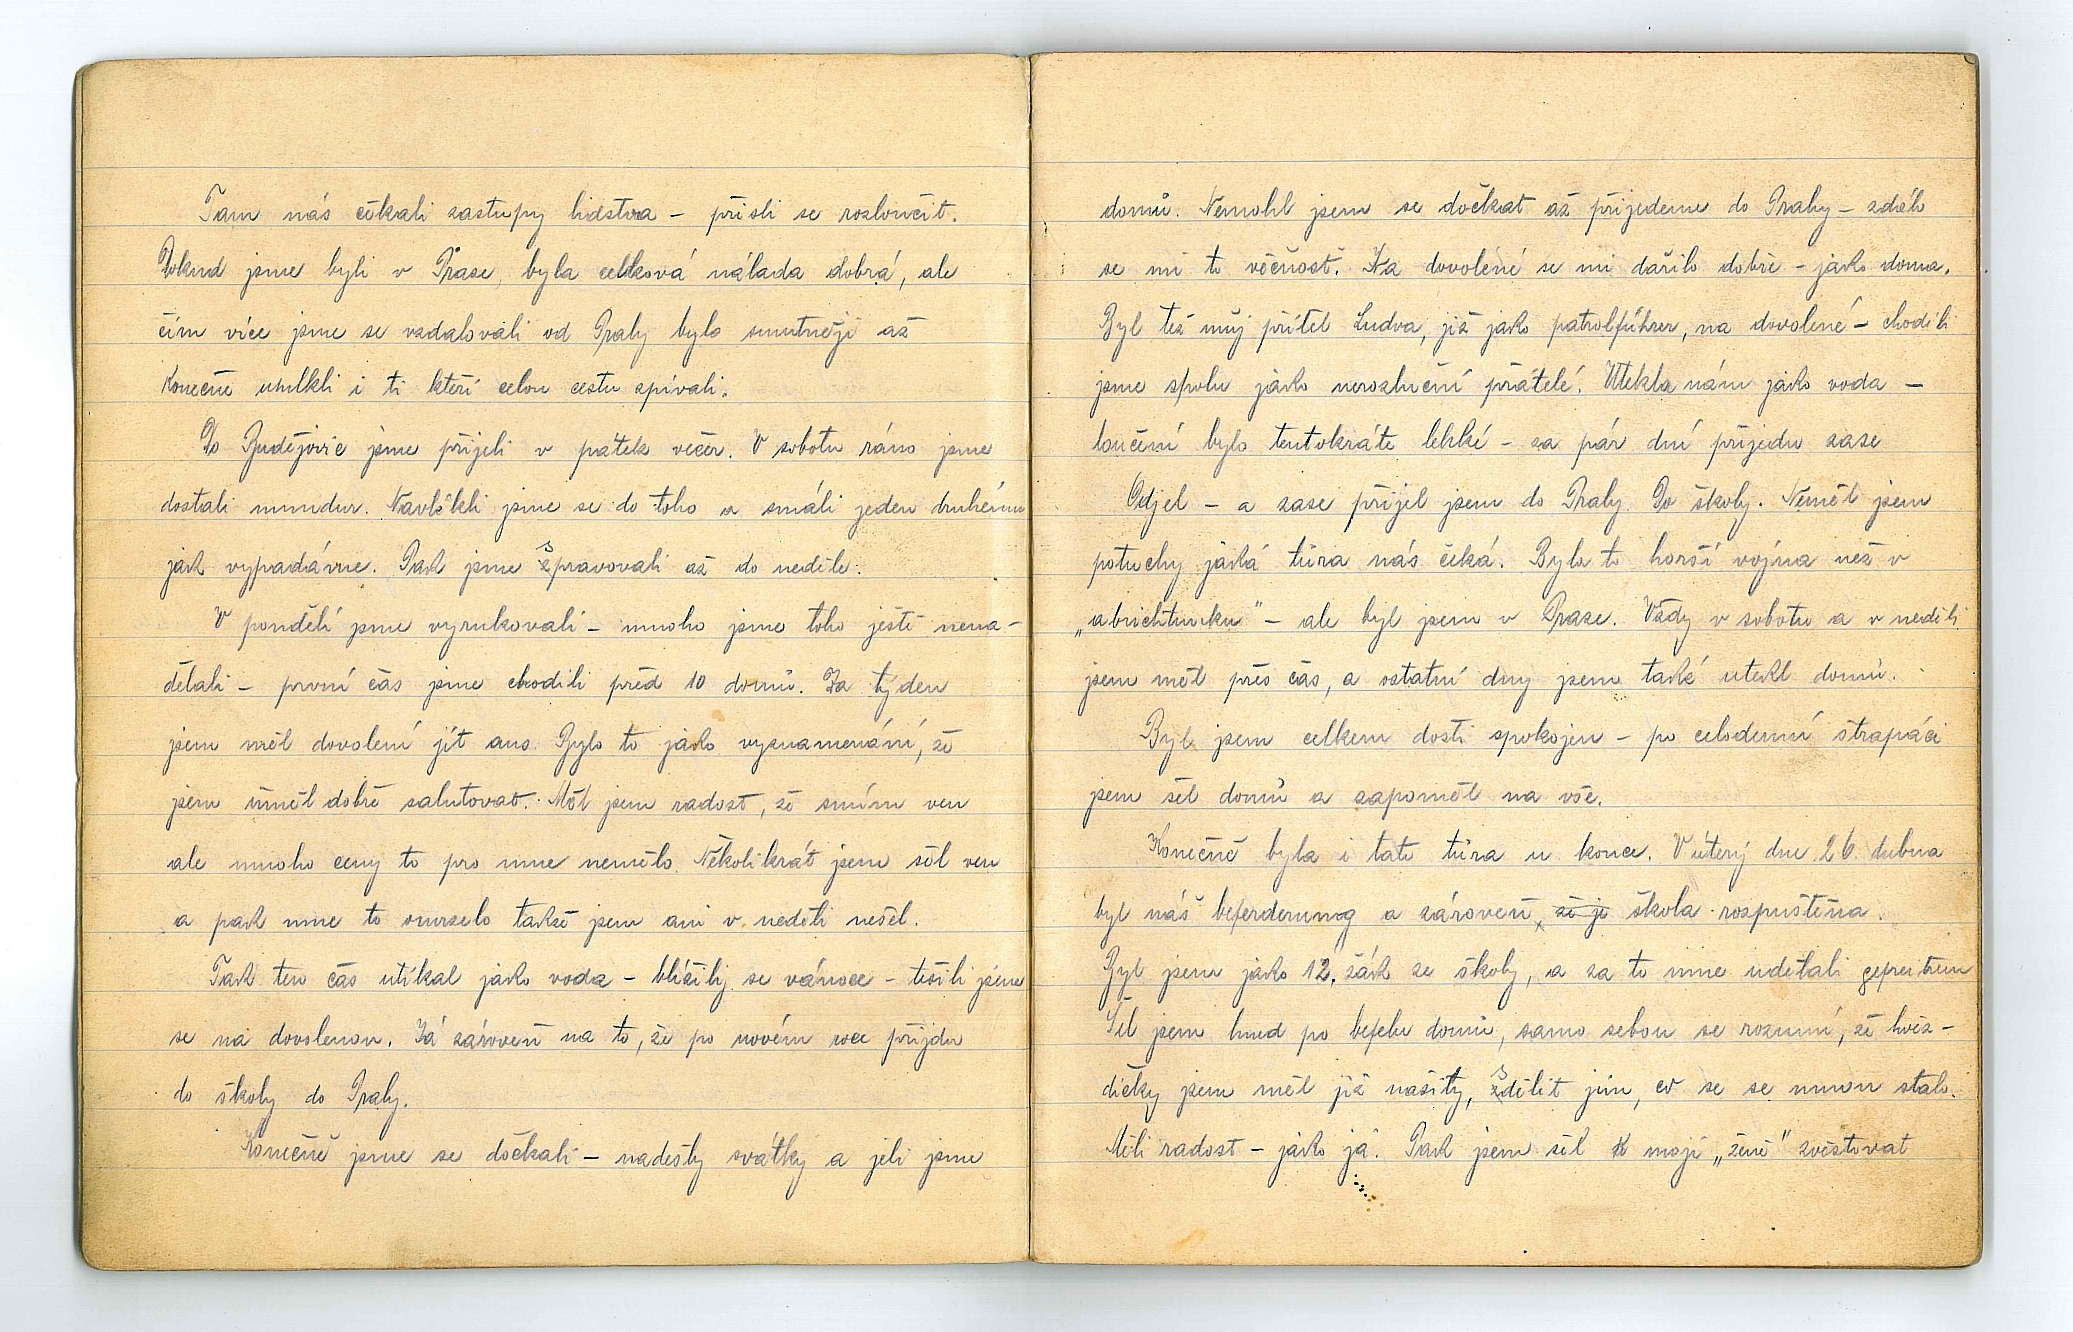 Tam nás čékali zastupy lidstva – přisli se rozloučit.
Pokud jsme byli v Praze, byla celková nálada dobrá, ale
čím více jsme se vzdalovali od Prahy bylo smutněji až
konečně umlkli i ti kteří celou cestu zpívali.
Do Budějovic jsme přijeli v pátek večer. V sobotu ráno jsme
dostali mundur. Navlékli jsme se do toho a smáli jeden druhému
jak vypadávme. Pak jsme spravovali až do neděle.
V pondělí jsme vyrukovali – mnoho jsme toho ještě nena-
dělali – první čás jsme chodili před 10 domů. Za týden
jsem měl dovolení jít aus. Bylo to jako vyznamenání, že
jsem uměl dobře salutovat. Měl jsem radost, že smím ven
ale mnoho ceny to pro mne nemělo. Několikrát jsem šel ven
a pak mne to omrzelo takže jsem ani v neděli nešel.
Tak ten čas utíkal jako voda – blížily se vánoce – těšili jsme
se na dovolenou. Já zároveň na to, že po novém roce přijdu
do školy do Prahy.
Konečně jsme se dočkali – nadešly svátky a jeli jsme
domů. Nemohl jsem se dočkat až přijedeme do Prahy – zdálo
se mi to věčnost. Na dovolené se mi dařilo dobře – jako doma.
Byl též můj přítel Ludva, již jako patrolführer, na dovolené – chodili
jsme spolu jako nerozluční přátelé. Utekla nám jako voda –
loučení bylo tentokráte lehké – za pár dní přijedu zase
Odjel – a zase přijel jsem do Prahy. Do školy. Neměl jsem
potuchy jaká túra nás čeká. Byla to horší vojna než v
„abrichtunku" – ale byl jsem v Praze. Vždy v sobotu a v neděli
jsem měl přes čás, a ostatní dny jsem také utekl domů.
Byl jsem celkem dosti spokojen – po celodenní štrapáci
jsem šel domů a zapoměl na vše.
Konečně byla i tato túra u konce. V úterý dne 26. dubna
byl náš beferderung a zároveň, že je škola rozpuštěna.
Byl jsem jako 12. žák ze školy, a za to mne udělali gefreitrem
Šel jsem hned po befelu domů, samo sebou se rozumí, že hvěz-
dičky jsem měl již našity, sdělit jim, co se se mnou stalo.
Měli radost – jako já. Pak jsem šel k mojí „ženě" zvěstovat